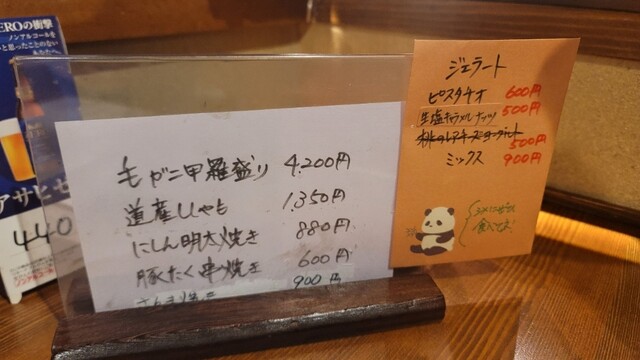 EROの衝撃
ノンアルコールを
と思ったことのない
あなたへ。
アサヒゼ
440
毛ガニ甲羅盛り 4,200円
道産ししゃも 1,350円
にしん明太焼き 880円
豚たく串焼き 600円
さんま焼き 900円
ジェラート
ピスタチオ 600円
生塩キャラメルナッツ 500円
500円
ミックス 900円